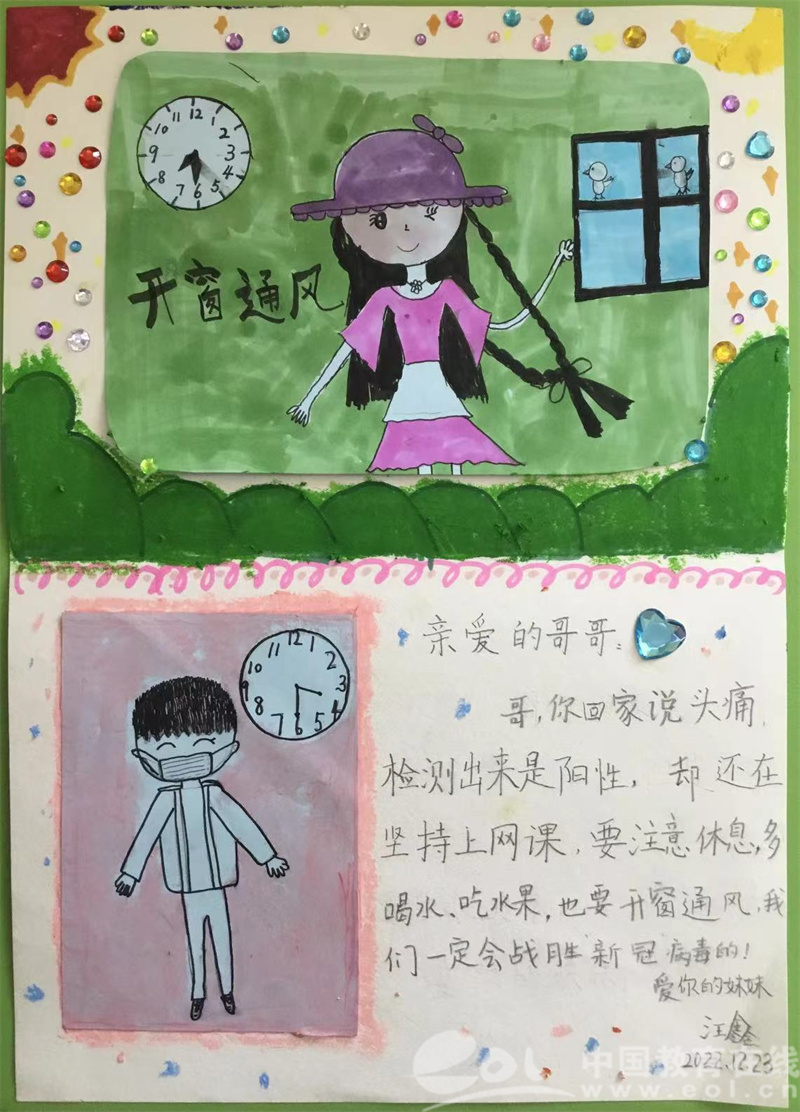 12
1
2
3
4
5
6
7
8
9
10
11
开窗通风
12
1
2
3
4
5
6
7
8
9
10
11
亲爱的哥哥：
哥，你回家说头痛，
检测出来是阳性，却还在
坚持上网课，要注意休息，多
喝水、吃水果，也要开窗通风，我
们一定会战胜新冠病毒的！
爱你的妹妹
汪鑫
2022.12.23
eol 中国教育在线
www.eol.cn